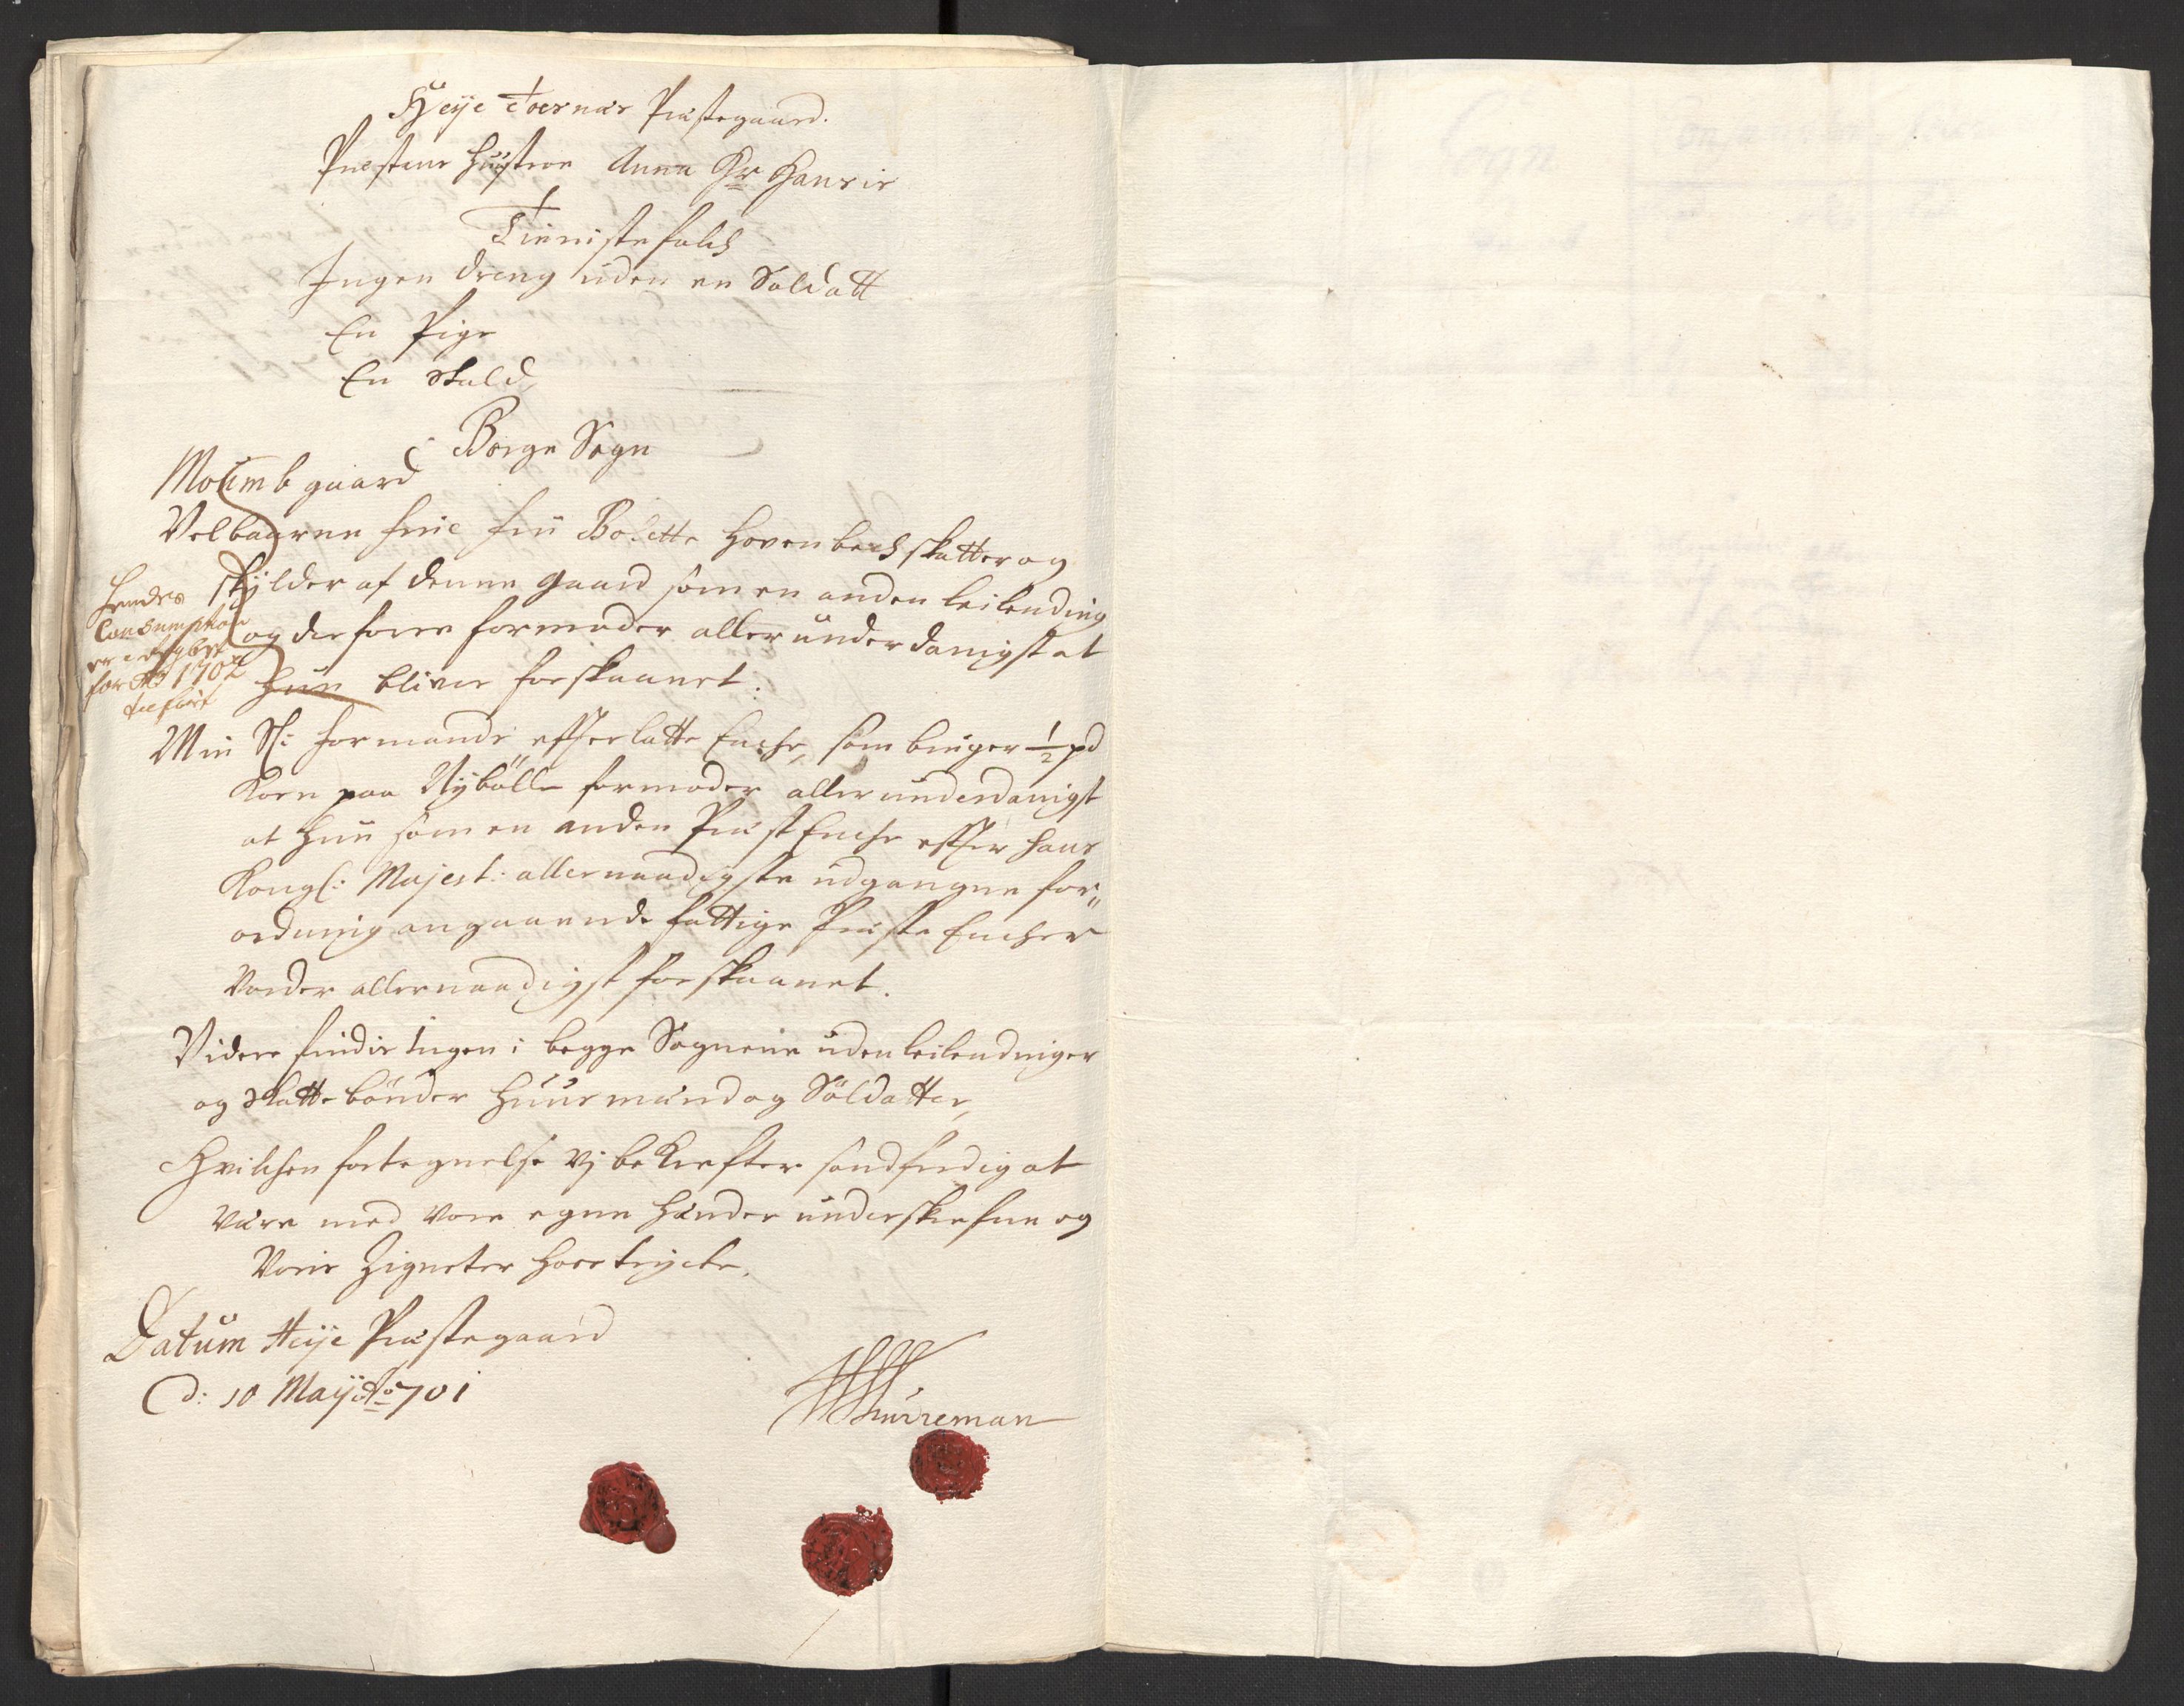 Præstegaard.
Præstens Hustroe Anna Hansis
Tienistefolch
Ingen dreng uden en Soldatt
En Pige
En Skald
Borge Sogn
Moumb gaard
Velbaarne Bolette Hovenbech skatter og
skÿlder af denne gaard som en anden leilending
og derfore formoder aller underdanigst at
hun bliver forskaanet.
Hendes
Consumption
for Ao 1702
Min Sl: Formands effterlatte Enche, som bruger ½ pd
Korn paa Nÿbölle formoder aller underdanigst
at hun som en anden Præst Enche effter Hans
Kongl: Majest: allernaadigste udgangne for„
ordning angaaende fattige Præste Encher
vorder allernaadigst forskaanet.
Videre findis ingen i begge Sognene uden leilendinger
og Skatte bönder Huusmænd og Soldatter,
Hvilchen fortegnelse vj bekrefter sandferdig at
være med vore egne hænder underskrefne og
Voris Zigneter hoestrÿcte.
Datum Heÿe Præstegaard
d: 10 Maÿ Ao 701